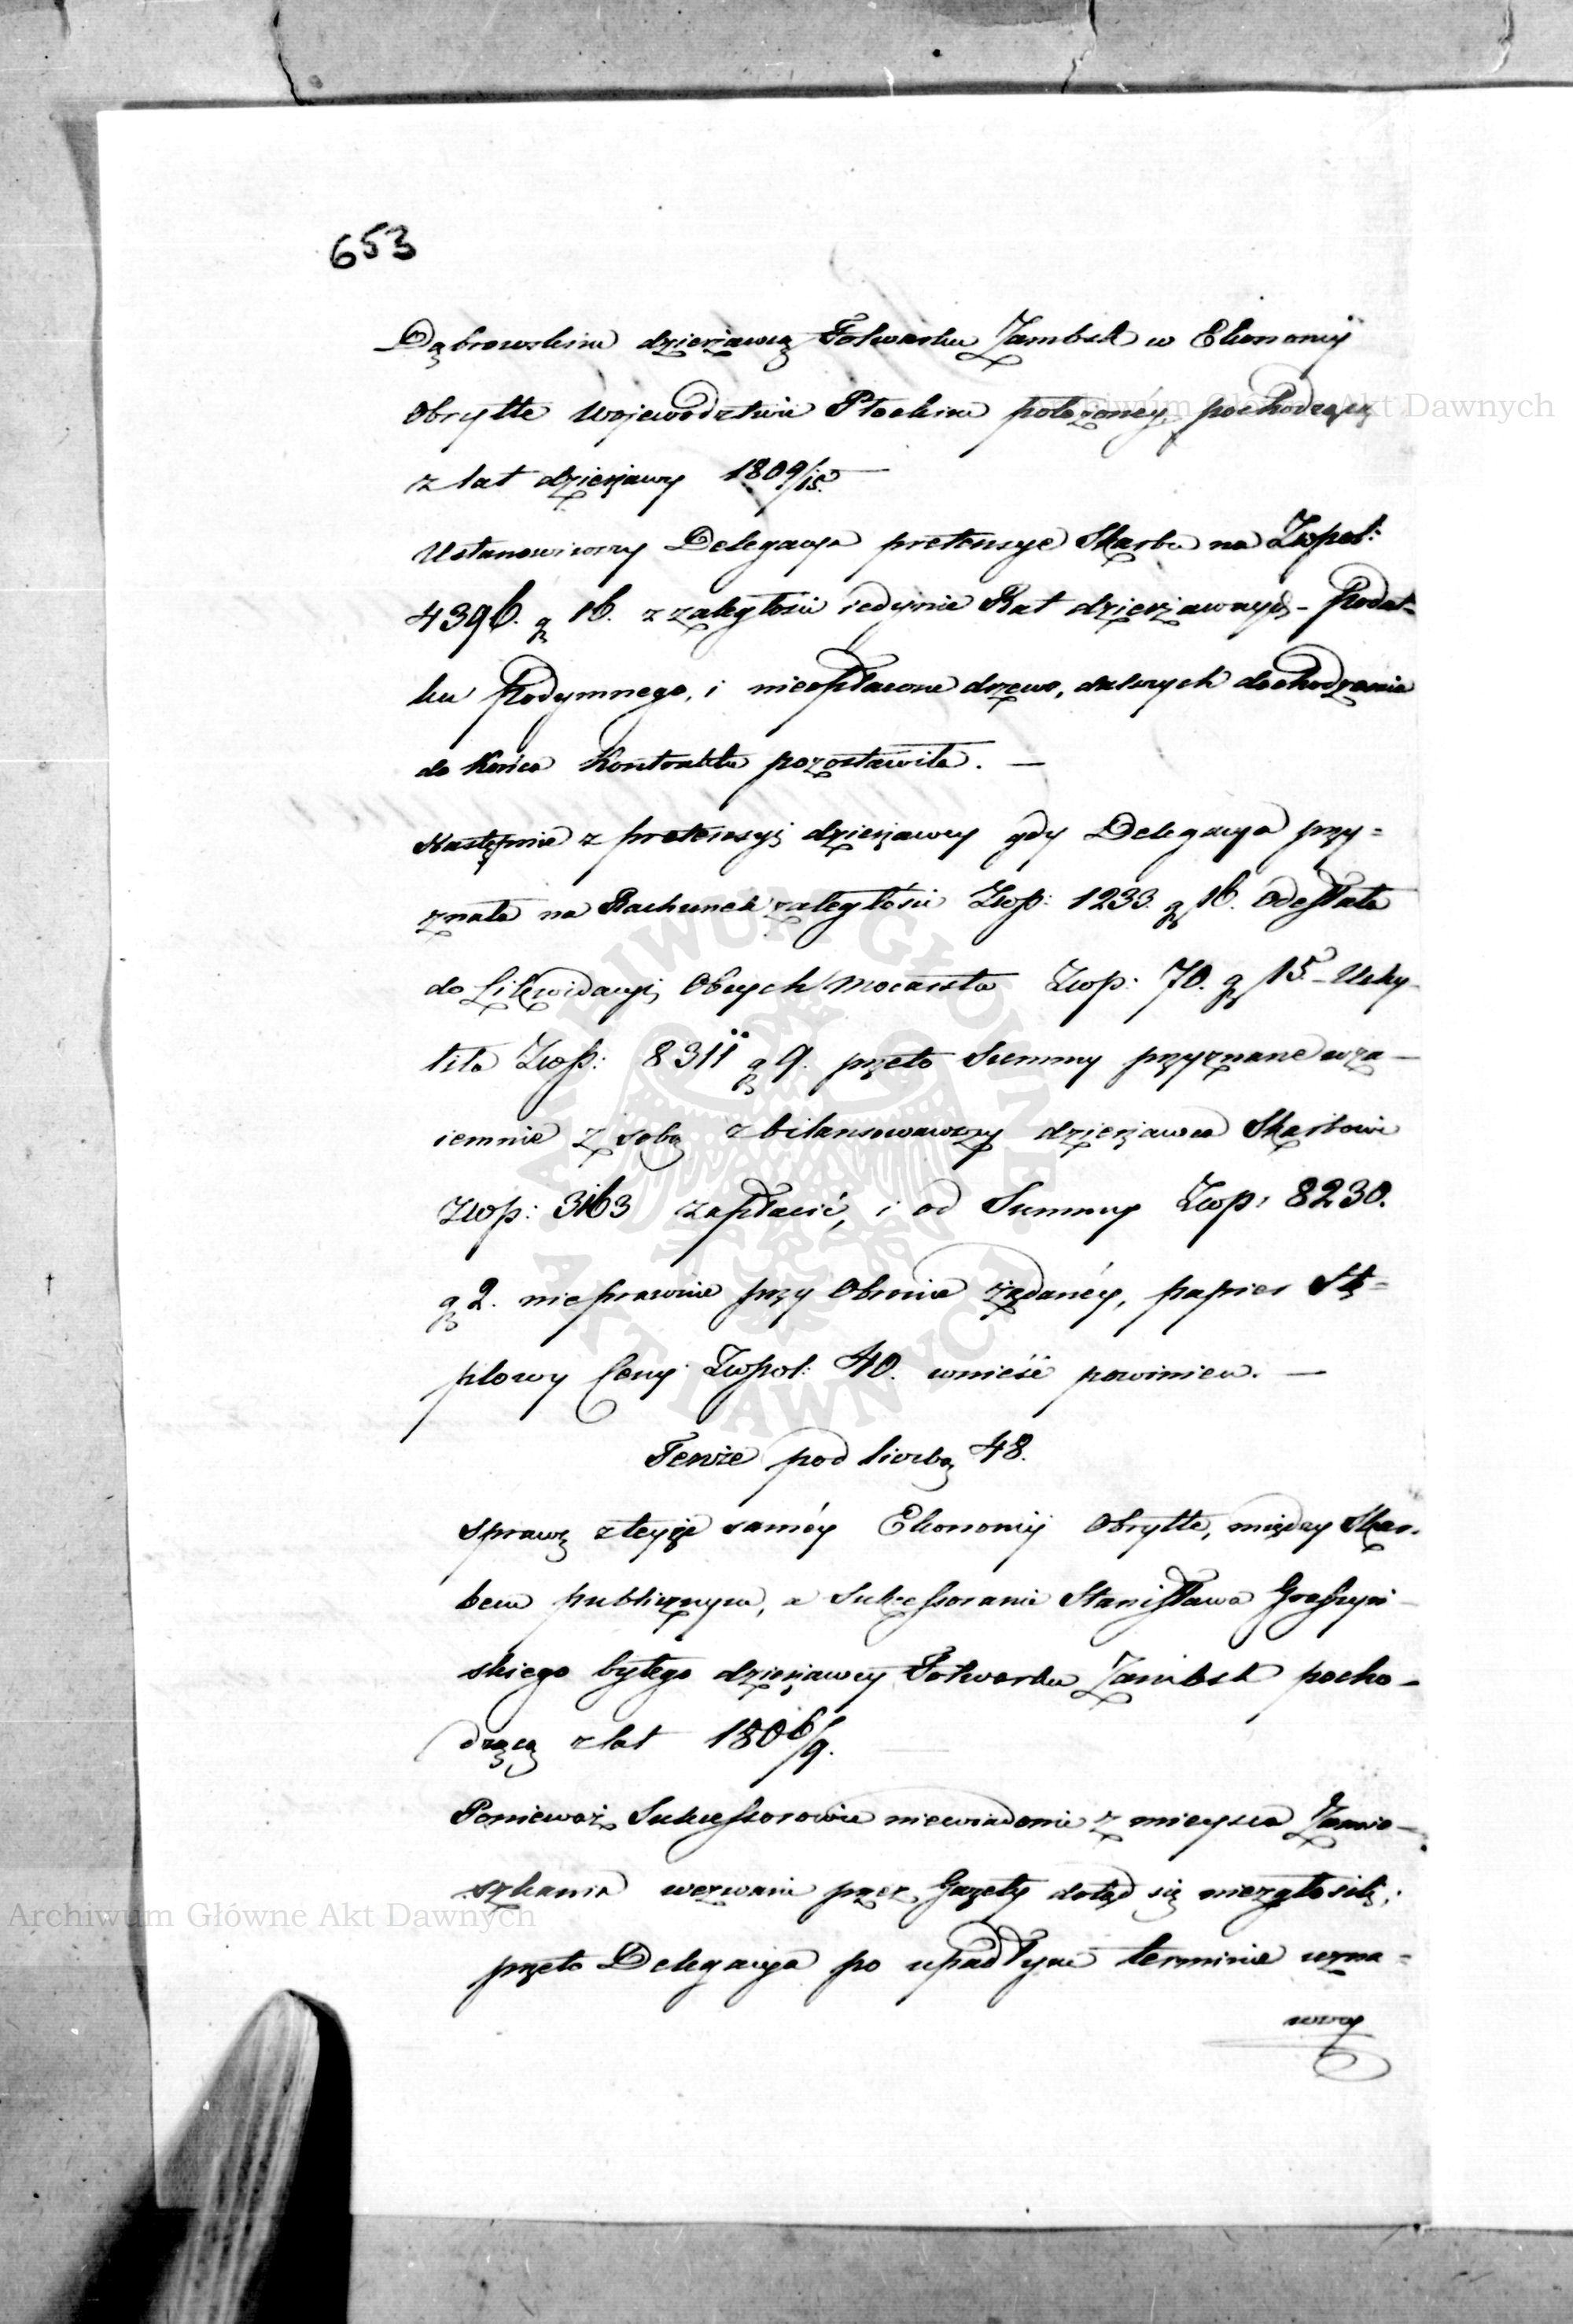 653
Dąbrowskim dzierżawcą Folwarku Zambsk w Ekonomij
Obrytte Województwie Płockim położoney, pochodzącą
z lat dzierżawy 1809/15.
Ustanowiwszy Delegacya pretensye Skarbu na Złpol:
4396. gr 16. z zaległości iedynie Rat dzierżawnych – Podat=
ku Podymnego, i nieopłacone drzewo, dalszych dochodzenia
do końca Kontraktu pozostawiła. —
Następnie z pretensyj dzierżawcy gdy Delegacya przy=
znała na Rachunek zaległości Złop: 1233. gr 16. Odesłała
do Likwidacyj Obcych Mocarstw Złop: 70. gr 15. – Uchy-
liła Złop: 8311 gr 9. przeto Summy przyznane wza-
iemnie z sobą zbilansowawszy dzierżawca Skarbowi
Złop: 3163 zapłacić, i od Summy Złop: 8230.
gr 2. nieprawnie przy Obronie żądanéy, papier Stę=
plowy Ceny Złpol: 40. wnieść powinien. —
Tenże pod liczbą 48.
Sprawę z teyże saméy Ekonomij Obrytte, między Skar-
bem publicznym, a Sukcessorami Stanisława
skiego byłego dzierżawcy Folwarku Zambsk pocho-
dzącą z lat 1806/9.
Ponieważ Sukcessorowie niewiadomi z mieysca Zamie-
szkania wezwani przez Gazety dotąd się niezgłosili;
przeto Delegacya po upadłym terminie wzna=
Archiwum Główne Akt Dawnych
Archiwum Główne Akt Dawnych
ARCHIWUM GŁÓWNE AKT DAWNYCH